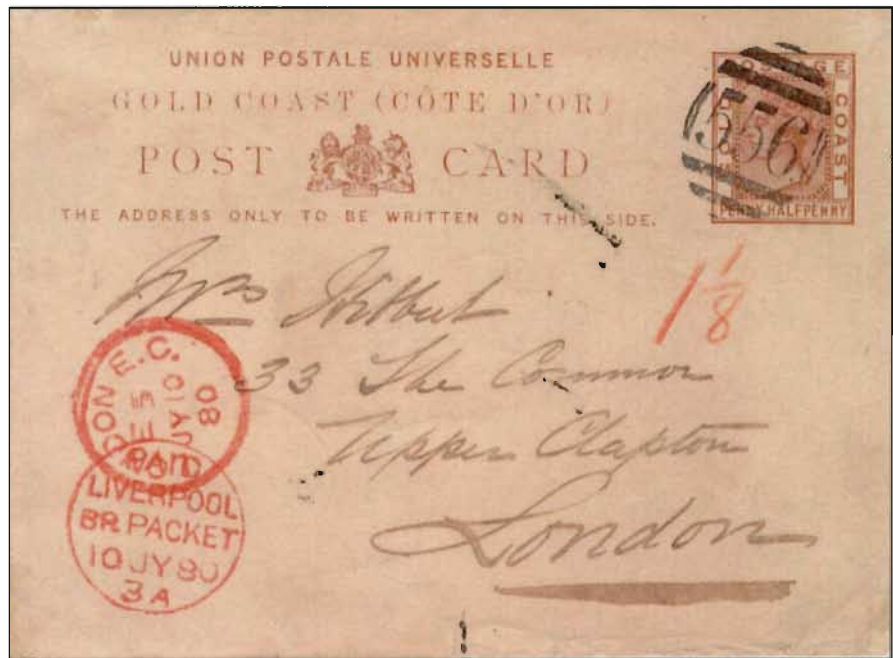 UNION POSTALE UNIVERSELLE
GOLD COAST (CÔTE D'OR)
POST CARD
THE ADDRESS ONLY TO BE WRITTEN ON THIS SIDE.
POSTAGE
GOLD COAST
PENNY HALFPENNY
556
1 1/8
Mrs
33 The Common
Upper Clapton
London
DON E.C.
JY 10
80
PAID
LIVERPOOL
BR. PACKET
10 JY 80
3A